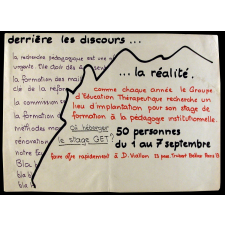 derrière les discours ...
la recherche pédagogique est une
urgente
la formation des
clé de la
la commission
la formation
méthodes
rénovation
notre
Bla b
Bla
Bla
... la réalité.
comme chaque année le Groupe
d'Education Thérapeutique recherche un
lieu d'implantation pour son stage de
formation à la pédagogie institutionnelle.
Où héberger
le stage GET?
50 personnes
du 1 au 7 septembre
faire offre rapidement à D. Viallon